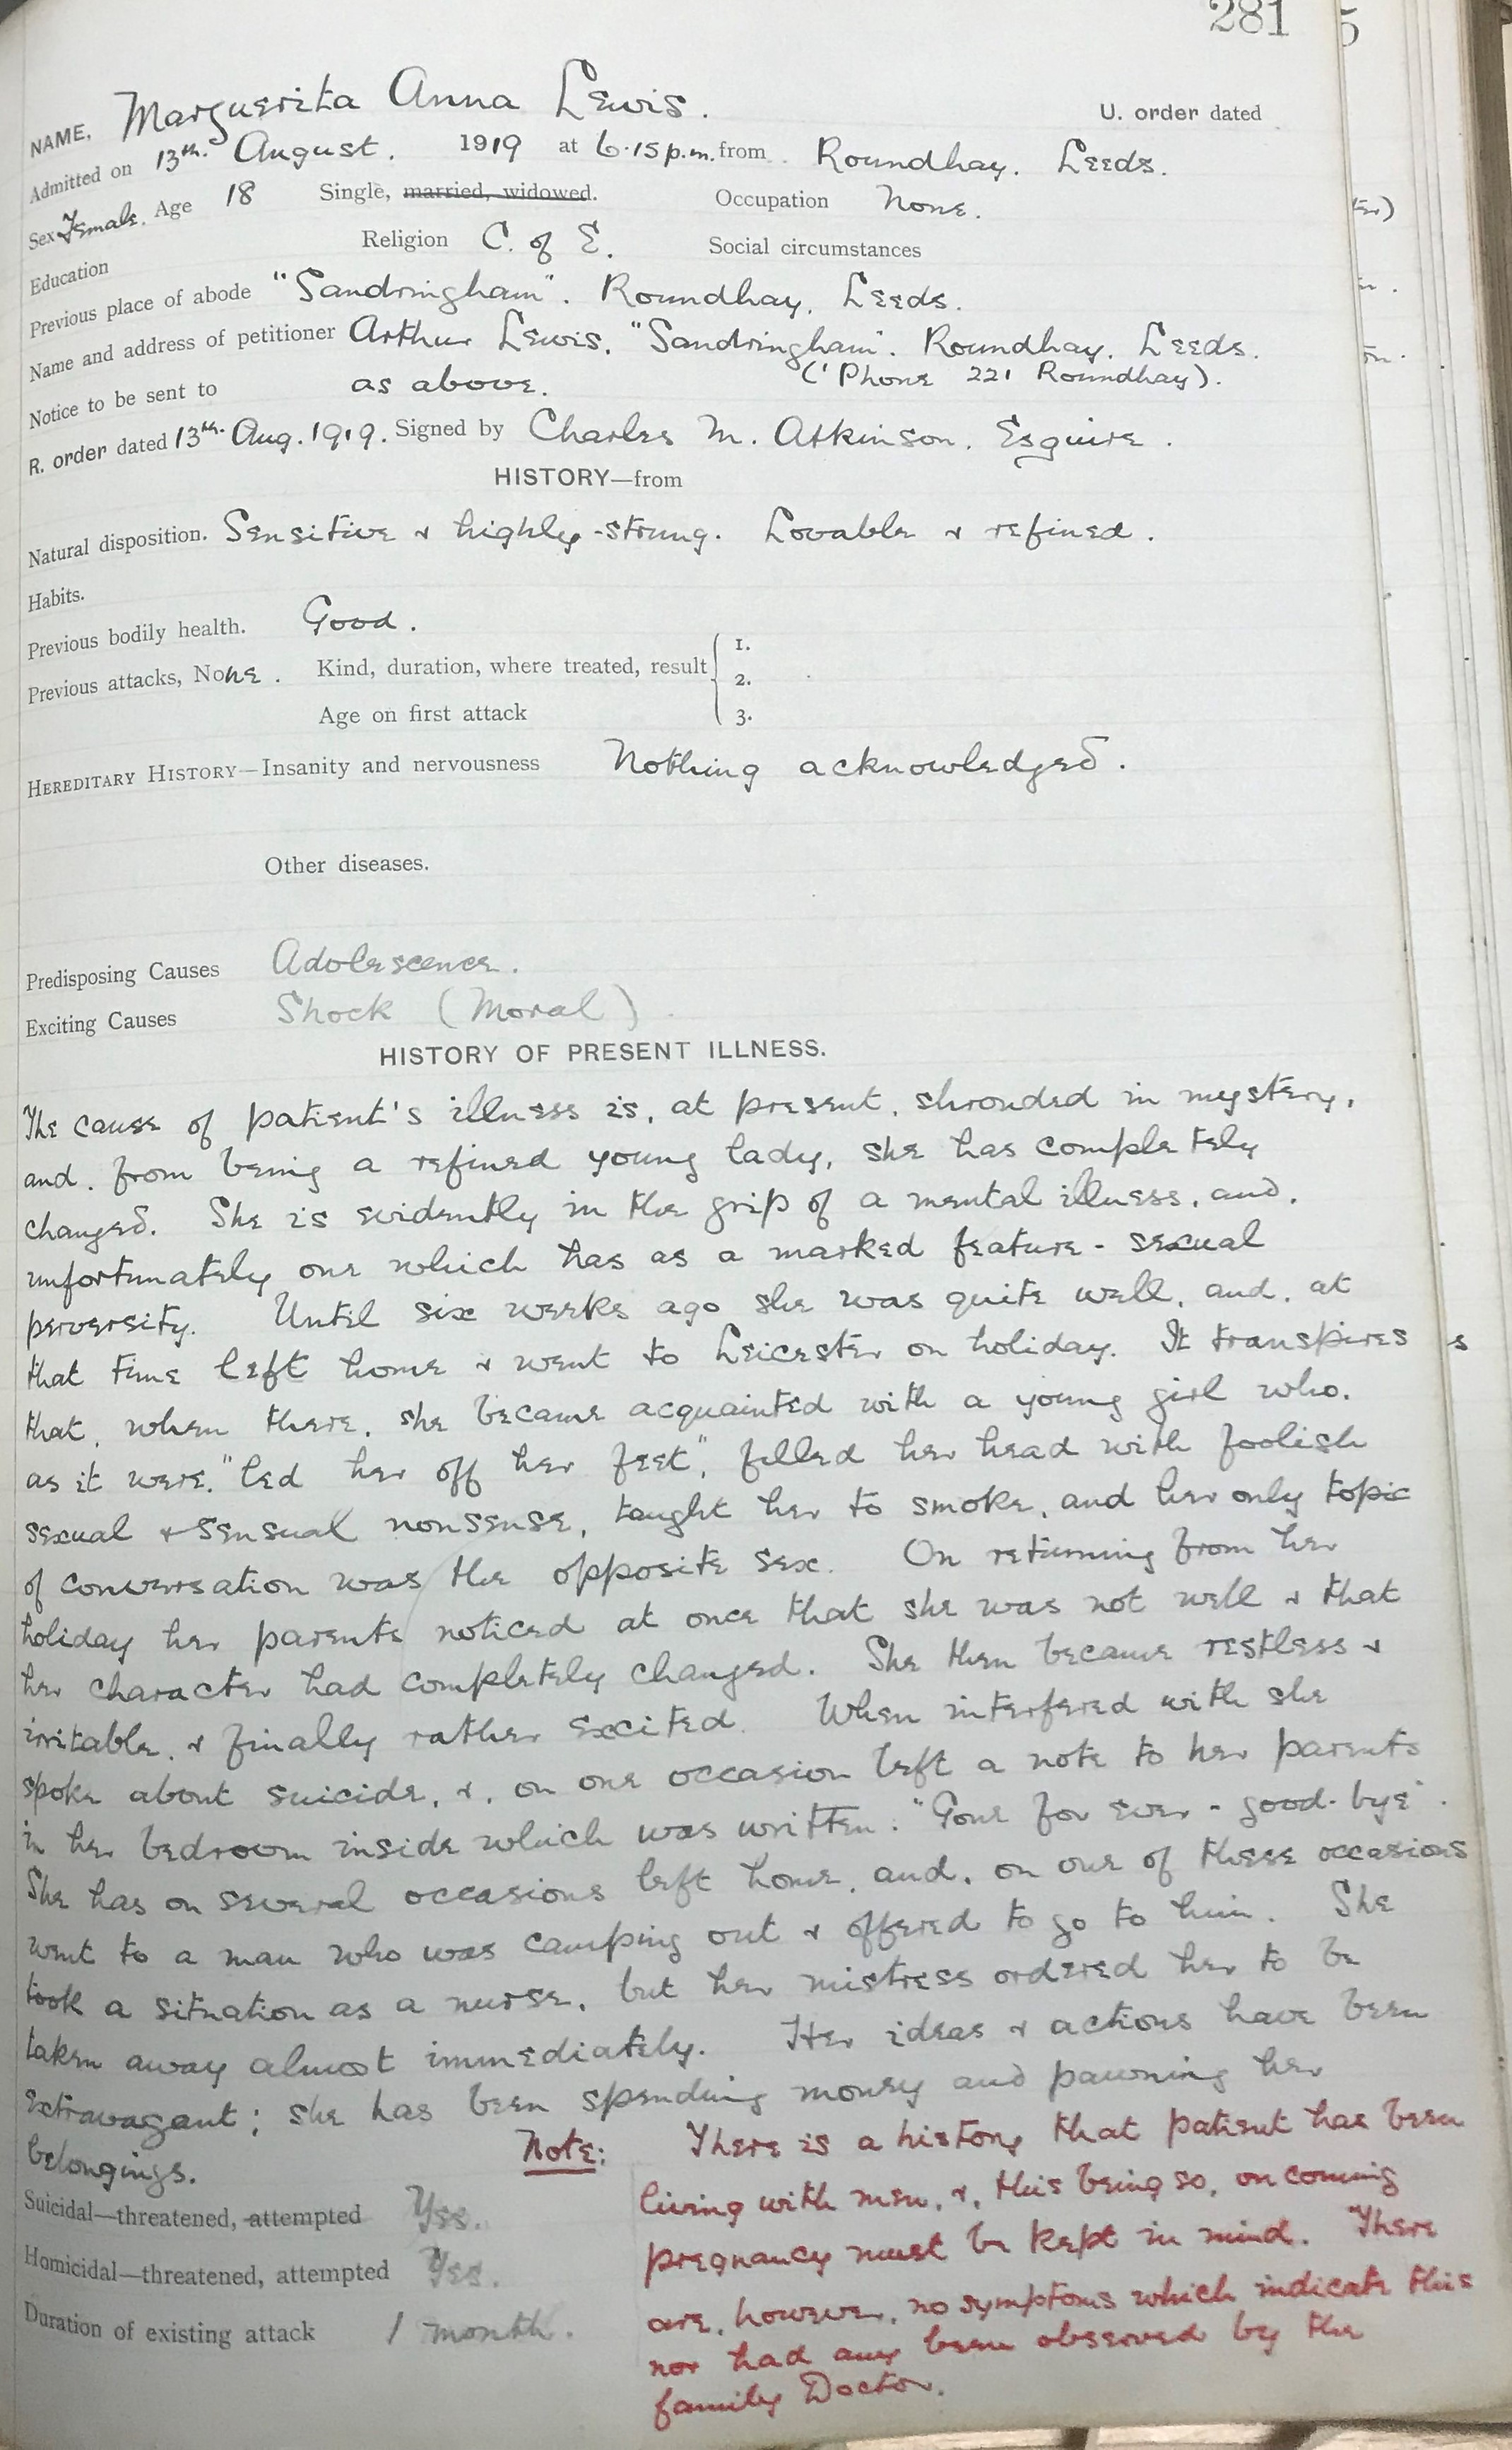 281
5
NAME, Marguerita Anna Lewis. U. order dated
Admitted on 13th. August. 1919 at 6.15 p.m. from Roundhay. Leeds.
Sex Female. Age 18 Single, married, widowed. Occupation None.
Education Religion C. of E. Social circumstances
Previous place of abode "Sandringham". Roundhay. Leeds.
Name and address of petitioner Arthur Lewis. "Sandringham". Roundhay. Leeds.
Notice to be sent to as above. ('Phone 221 Roundhay).
R. order dated 13th. Aug. 1919. Signed by Charles M. Atkinson. Esquire.
HISTORY—from
Natural disposition. Sensitive & highly-strung. Lovable & refined.
Habits.
Previous bodily health. Good.
Previous attacks, None. Kind, duration, where treated, result 1.
2.
Age on first attack 3.
HEREDITARY HISTORY—Insanity and nervousness Nothing acknowledged.
Other diseases.
Predisposing Causes Adolescence.
Exciting Causes Shock (Moral)
HISTORY OF PRESENT ILLNESS.
The cause of patient's illness is, at present, shrouded in mystery,
and, from being a refined young lady, she has completely
changed. She is evidently in the grip of a mental illness, and,
unfortunately one which has as a marked feature - sexual
perversity. Until six weeks ago she was quite well, and, at
that time left home & went to Leicester on holiday. It transpires
that, when there, she became acquainted with a young girl who,
as it were, "led her off her feet", filled her head with foolish
sexual & sensual nonsense, taught her to smoke, and her only topic
of conversation was the opposite sex. On returning from her
holiday her parents noticed at once that she was not well & that
her character had completely changed. She then became restless &
irritable, & finally rather excited. When interfered with she
spoke about suicide, &, on one occasion left a note to her parents
in her bedroom inside which was written: "Gone for ever - good-bye".
She has on several occasions left home, and, on one of these occasions
went to a man who was camping out & offered to go to him. She
took a situation as a nurse, but her mistress ordered her to be
taken away almost immediately. Her ideas & actions have been
extravagant; she has been spending money and pawning her
belongings.
Note: There is a history that patient has been
living with men, &, this being so, oncoming
pregnancy must be kept in mind. There
are, however, no symptoms which indicate this
nor had any been observed by the
family Doctor.
Suicidal—threatened, attempted Yes.
Homicidal—threatened, attempted Yes.
Duration of existing attack 1 month.